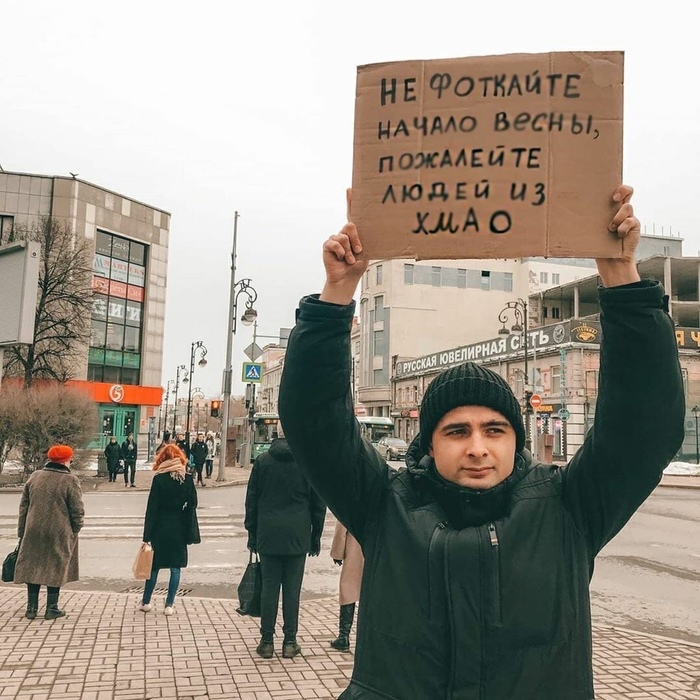 НЕ ФОТКАЙТЕ
НАЧАЛО ВЕСНЫ,
ПОЖАЛЕЙТЕ
ЛЮДЕЙ ИЗ
ХМАО
РУССКАЯ ЮВЕЛИРНАЯ СЕТЬ
5